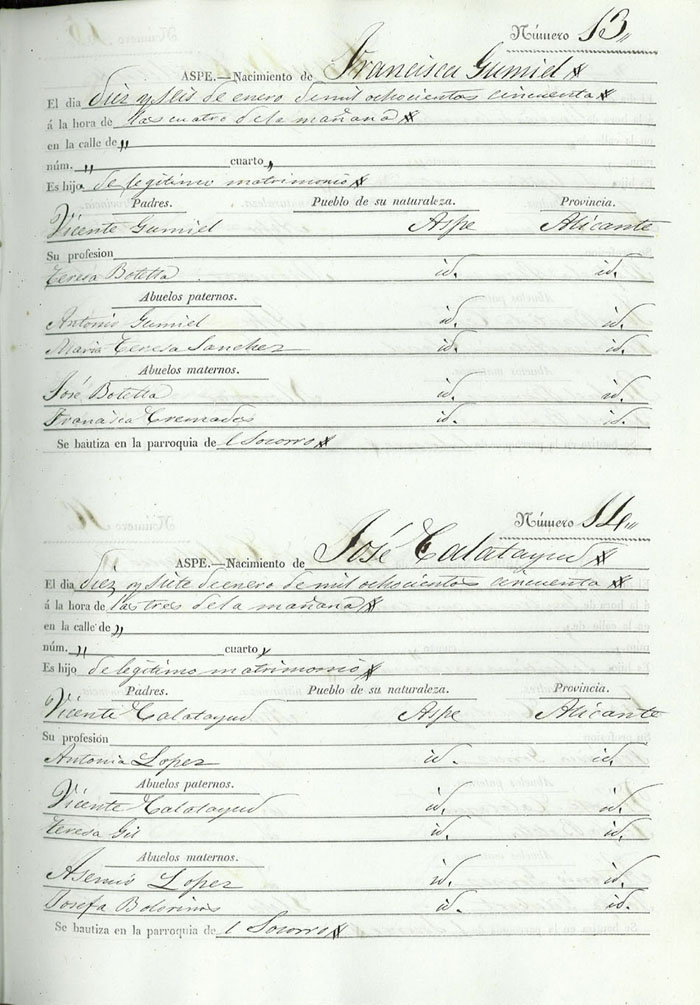 Número 13,,
ASPE.—Nacimiento de Francisca Gumiel
El dia diez y seis de enero de mil ochocientos cincuenta
á la hora de las cuatro de la mañana
en la calle de ,,
núm. ,, cuarto ,,
Es hijo de legitimo matrimonio
Padres. Pueblo de su naturaleza. Provincia.
Vicente Gumiel Aspe Alicante
Su profesion
Teresa Botella id. id.
Abuelos paternos.
Antonio Gumiel id. id.
Maria Teresa Sanchez id. id.
Abuelos maternos.
José Botella id. id.
Francisca Cremades id. id.
Se bautiza en la parroquia de l Socorro
Número 14,,
ASPE.—Nacimiento de José Calatayud
El dia diez y siete de enero de mil ochocientos cincuenta
á la hora de las tres de la mañana
en la calle de ,,
núm. ,, cuarto ,
Es hijo de legitimo matrimonio
Padres. Pueblo de su naturaleza. Provincia.
Vicente Calatayud Aspe Alicante
Su profesion
Antonia Lopez id. id.
Abuelos paternos.
Vicente Calatayud id. id.
Teresa Gil id. id.
Abuelos maternos.
Lopez id. id.
Josefa id. id.
Se bautiza en la parroquia de l Socorro